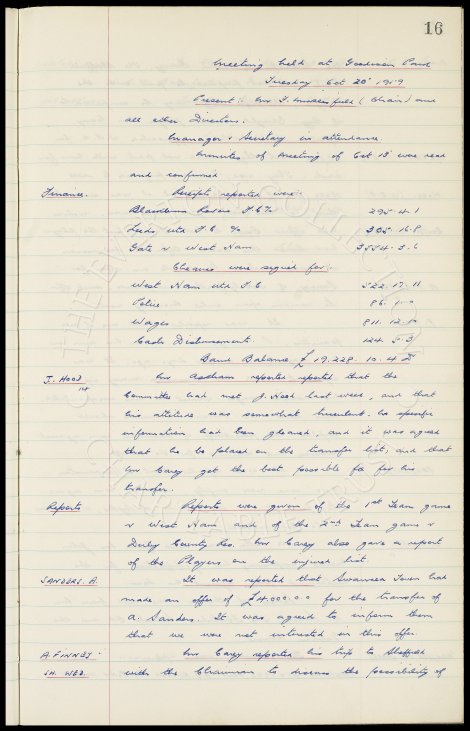 16
Meeting held at Goodison Park
Tuesday Oct 20th 1959
Present:- Mr F. Micklesfield (Chair) and
all other Directors.
Manager & Secretary in attendance.
Minutes of Meeting of Oct 13th were read
and confirmed
Finance. Receipts reported were:
Blackburn Rovers F.C. % 295.4.1
Leeds Utd F.C. % 305.16.8
Gate v West Ham 3554.3.6
Cheques were signed for:
West Ham Utd F.C 522.17.11
Police 86.
Wages 811.12.
Cash Disbursement 124.5.3
Bank Balance £19,228.10.4
J. HOOD Mr reported reported that the
Committee had met J. Hood last week, and that
his attitude was somewhat. No specific
information had been gleaned, and it was agreed
that he be placed on the transfer list, and that
Mr Carey get the best possible for his
transfer.
Reports Reports were given of the 1st Team game
v West Ham and of the 2nd Team game v
Derby County Res. Mr Carey also gave a report
of the Players on the injured list.
SANDERS. A. It was reported that Swansea Town had
made an offer of £4,000.0.0 for the transfer of
A. Sanders. It was agreed to inform them
that we were not interested in this offer
A. FINNEY - Mr Carey reported his trip to Sheffield
SH. WED. with the Chairman to discuss the possibility of
THE EVERTON COLLECTION